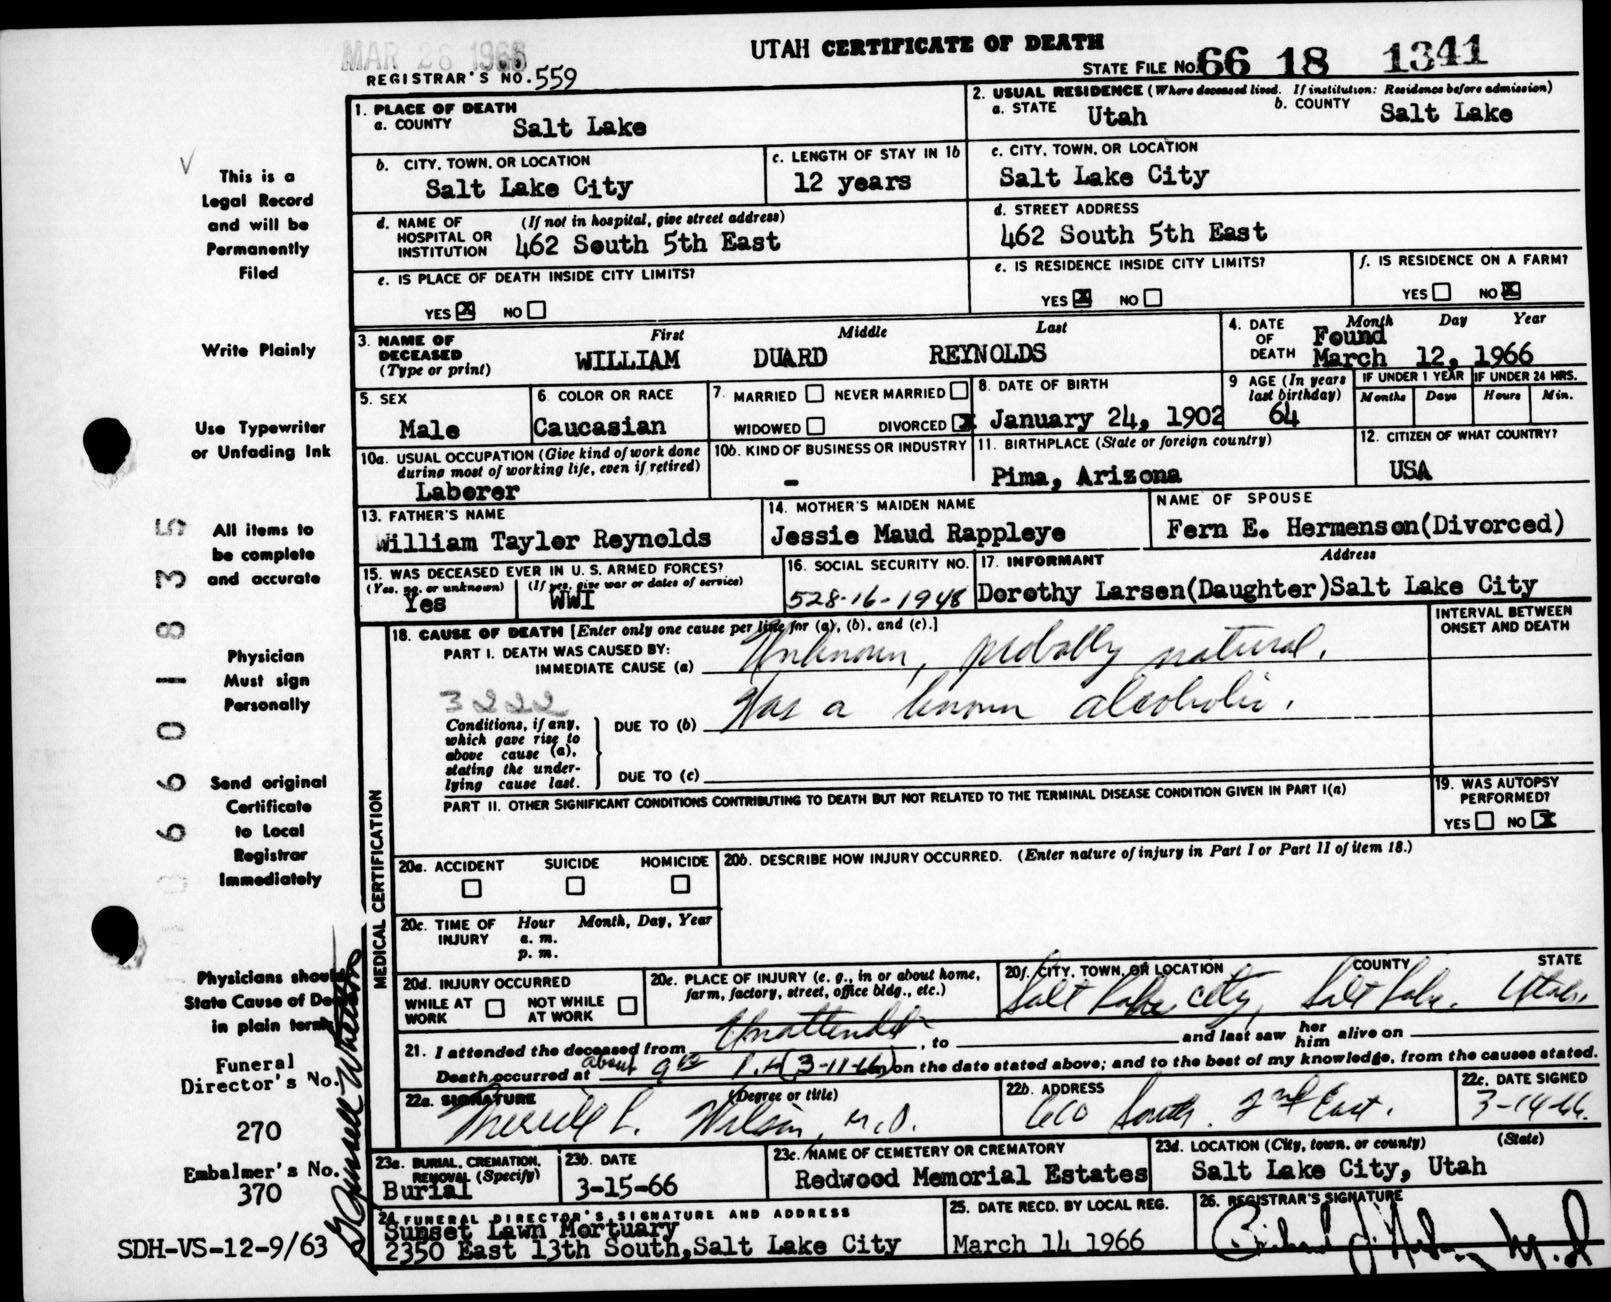 MAR 28 1966
UTAH CERTIFICATE OF DEATH
REGISTRAR'S NO. 559
STATE FILE NO. 66 18 1341
1. PLACE OF DEATH
a. COUNTY Salt Lake
2. USUAL RESIDENCE (Where deceased lived. If institution: Residence before admission)
a. STATE Utah
b. COUNTY Salt Lake
b. CITY, TOWN, OR LOCATION
Salt Lake City
c. LENGTH OF STAY IN 1b
12 years
c. CITY, TOWN, OR LOCATION
Salt Lake City
d. NAME OF HOSPITAL OR INSTITUTION (If not in hospital, give street address)
462 South 5th East
d. STREET ADDRESS
462 South 5th East
e. IS PLACE OF DEATH INSIDE CITY LIMITS?
YES X NO
e. IS RESIDENCE INSIDE CITY LIMITS?
YES X NO
f. IS RESIDENCE ON A FARM?
YES NO X
3. NAME OF DECEASED (Type or print)
First Middle Last
WILLIAM DUARD REYNOLDS
4. DATE OF DEATH
Month Day Year
Found
March 12, 1966
5. SEX
Male
6. COLOR OR RACE
Caucasian
7. MARRIED NEVER MARRIED
WIDOWED DIVORCED X
8. DATE OF BIRTH
January 24, 1902
9 AGE (In years last birthday)
64
IF UNDER 1 YEAR
Months Days
IF UNDER 24 HRS.
Hours Min.
10a. USUAL OCCUPATION (Give kind of work done during most of working life, even if retired)
Laborer
10b. KIND OF BUSINESS OR INDUSTRY
-
11. BIRTHPLACE (State or foreign country)
Pima, Arizona
12. CITIZEN OF WHAT COUNTRY?
USA
13. FATHER'S NAME
William Taylor Reynolds
14. MOTHER'S MAIDEN NAME
Jessie Maud Rappleye
NAME OF SPOUSE
Fern E. Hermenson(Divorced)
15. WAS DECEASED EVER IN U. S. ARMED FORCES?
(Yes, no, or unknown) (If yes, give war or dates of service)
Yes WWI
16. SOCIAL SECURITY NO.
528-16-1948
17. INFORMANT Address
Dorothy Larsen(Daughter)Salt Lake City
MEDICAL CERTIFICATION
18. CAUSE OF DEATH [Enter only one cause per line for (a), (b), and (c).]
INTERVAL BETWEEN ONSET AND DEATH
PART I. DEATH WAS CAUSED BY:
IMMEDIATE CAUSE (a) Unknown, probally natural.
3222
Conditions, if any, which gave rise to above cause (a), stating the underlying cause last.
DUE TO (b) Was a known alcoholic.
DUE TO (c)
PART II. OTHER SIGNIFICANT CONDITIONS CONTRIBUTING TO DEATH BUT NOT RELATED TO THE TERMINAL DISEASE CONDITION GIVEN IN PART I(a)
19. WAS AUTOPSY PERFORMED?
YES NO X
20a. ACCIDENT SUICIDE HOMICIDE
20b. DESCRIBE HOW INJURY OCCURRED. (Enter nature of injury in Part I or Part II of item 18.)
20c. TIME OF INJURY Hour Month, Day, Year
a. m.
p. m.
20d. INJURY OCCURRED
WHILE AT WORK NOT WHILE AT WORK
20e. PLACE OF INJURY (e. g., in or about home, farm, factory, street, office bldg., etc.)
20f. CITY, TOWN, OR LOCATION COUNTY STATE
Salt Lake City, Salt Lake. Utah.
21. I attended the deceased from Unattended, to and last saw her him alive on
Death occurred at about 9 P.M (3-11-66) m on the date stated above; and to the best of my knowledge, from the causes stated.
22a. SIGNATURE (Degree or title)
Merrill L. Wilson, M.D.
22b. ADDRESS
600 South. 2nd East.
22c. DATE SIGNED
3-14-66.
23a. BURIAL, CREMATION, REMOVAL (Specify)
Burial
23b. DATE
3-15-66
23c. NAME OF CEMETERY OR CREMATORY
Redwood Memorial Estates
23d. LOCATION (City, town, or county) (State)
Salt Lake City, Utah
24. FUNERAL DIRECTOR'S SIGNATURE AND ADDRESS
Sunset Lawn Mortuary
2350 East 13th South, Salt Lake City
25. DATE RECD. BY LOCAL REG.
March 14 1966
26. REGISTRAR'S SIGNATURE
M.D
This is a
Legal Record
and will be
Permanently
Filed
Write Plainly
Use Typewriter
or Unfading Ink
All items to
be complete
and accurate
Physician
Must sign
Personally
Send original
Certificate
to Local
Registrar
Immediately
Physicians should
State Cause of Death
in plain terms
Funeral
Director's No.
270
Embalmer's No.
370
SDH-VS-12-9/63
0660183 5